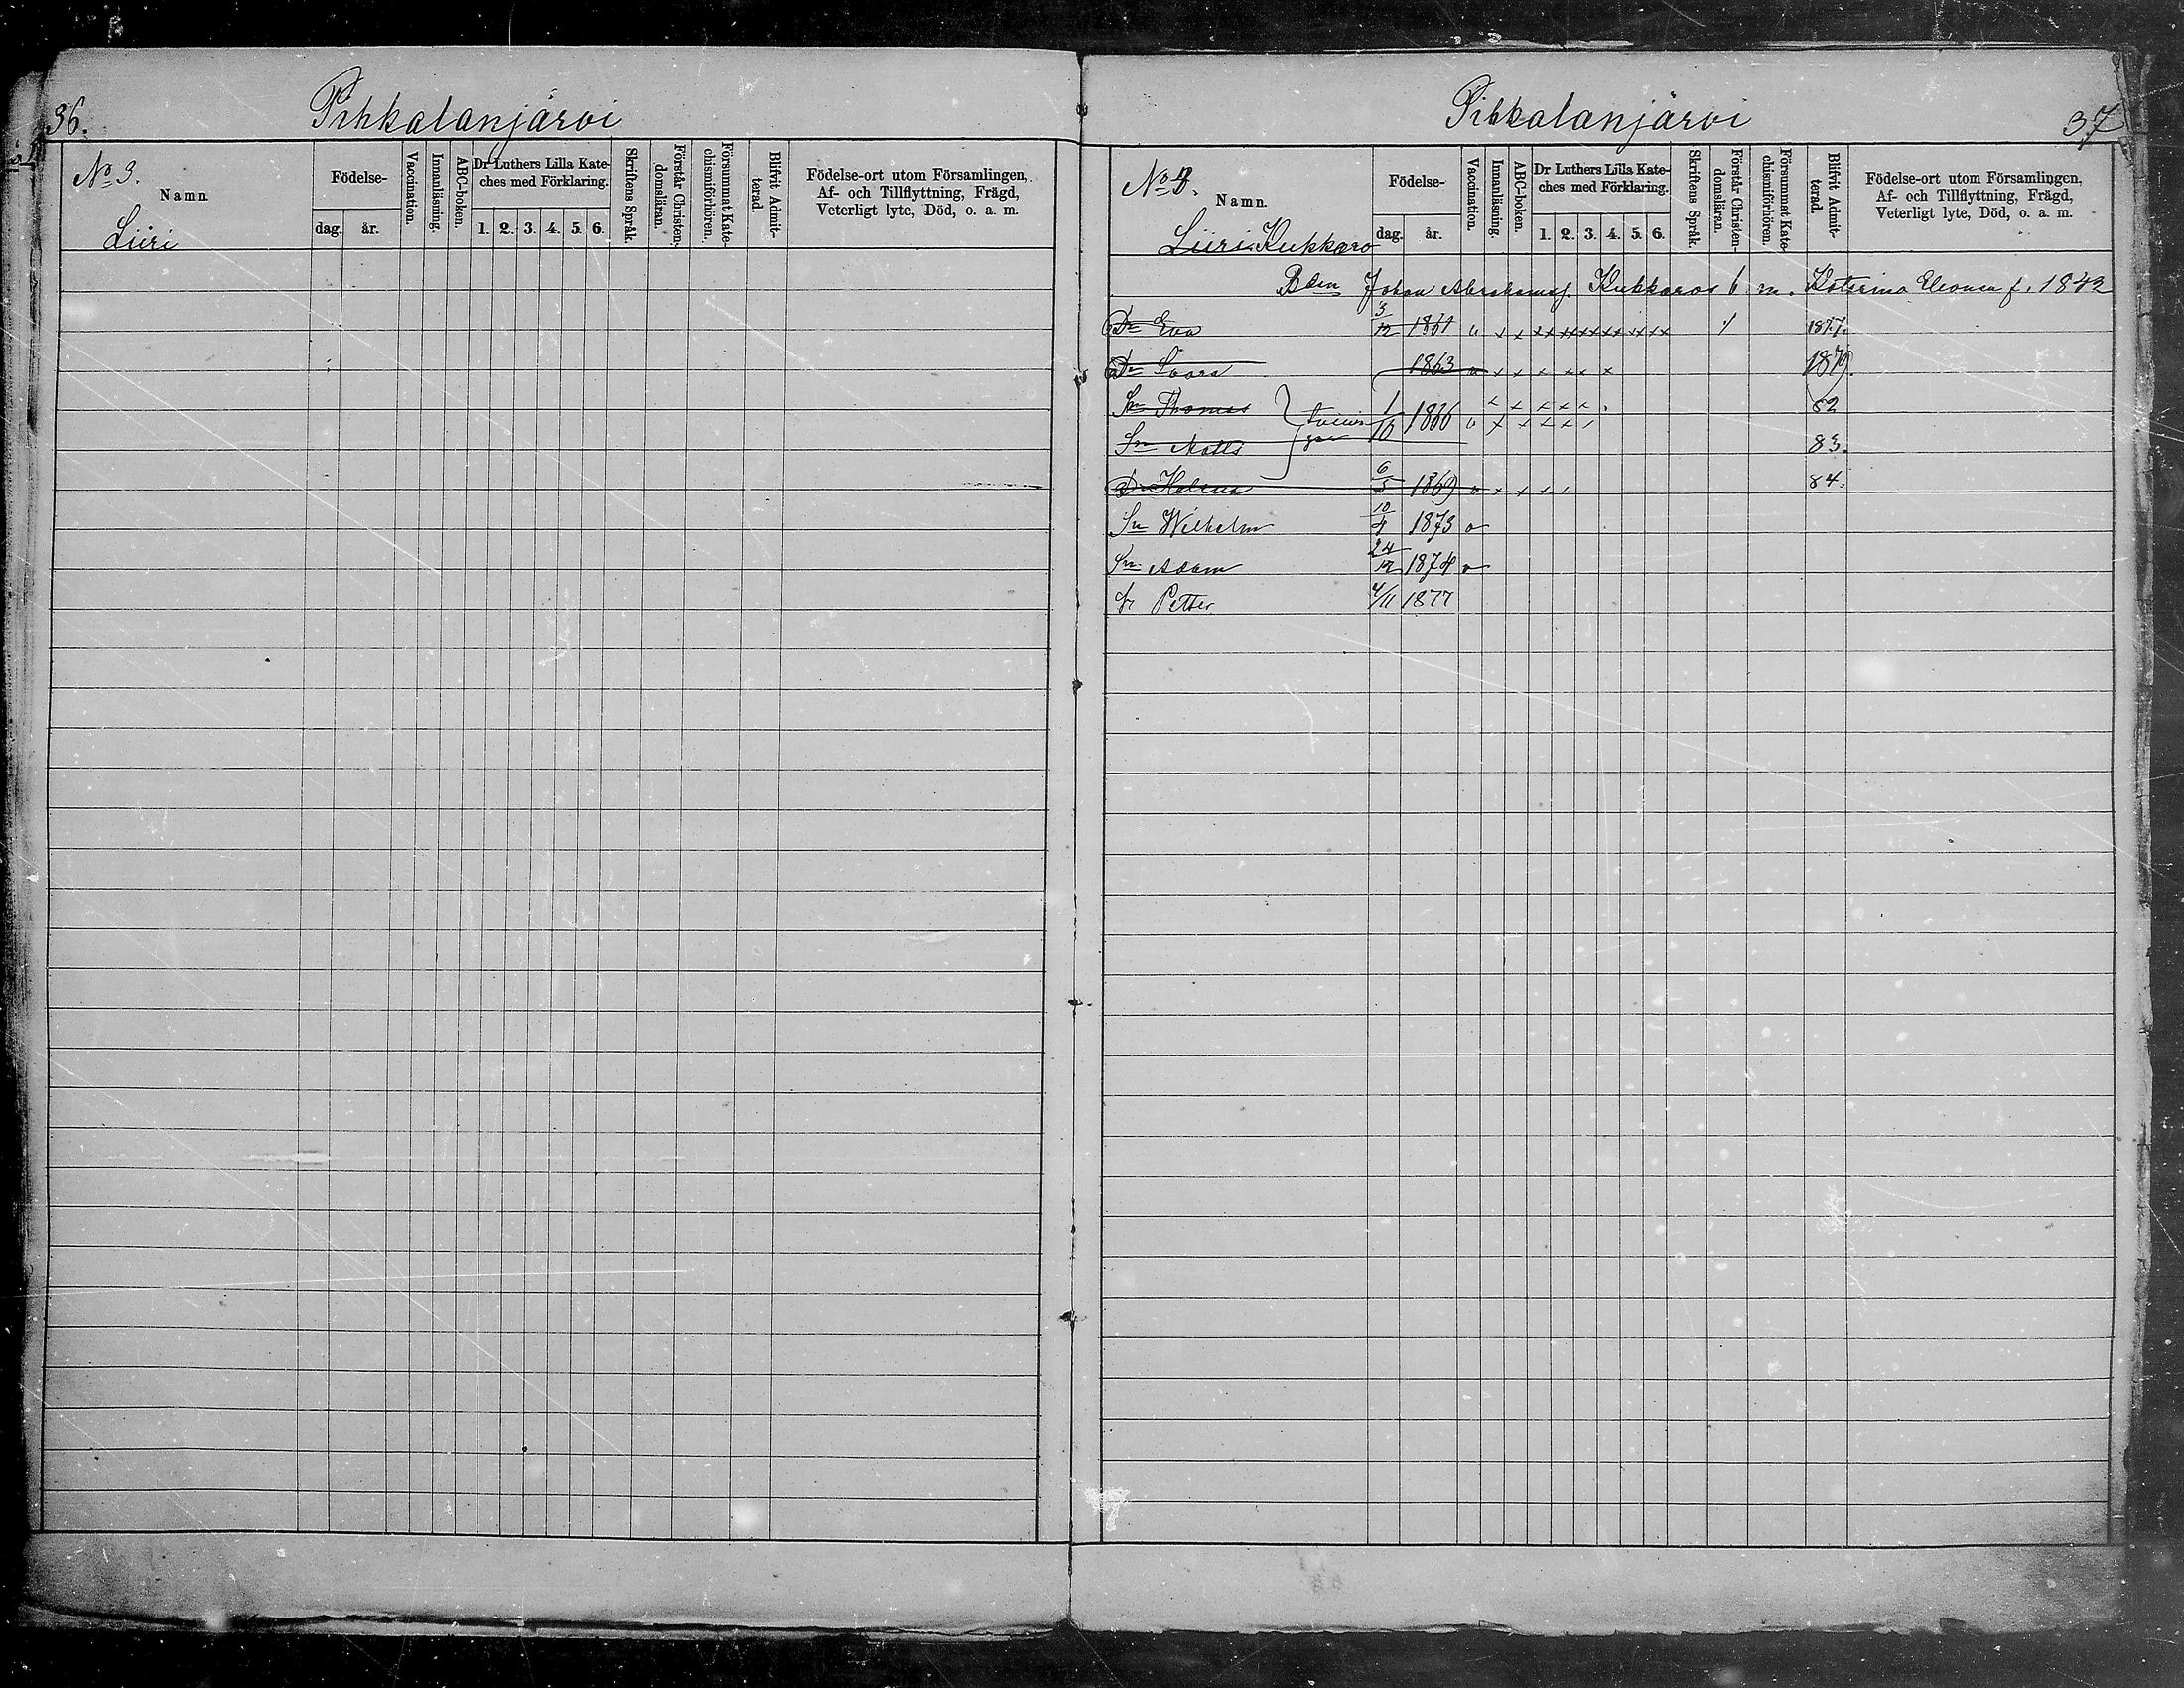 36.
Pihkalanjärvi
No 3.
Namn.
Födelse-
dag.
år.
Vaccination.
Innanläsning.
ABC-boken.
Dr Luthers Lilla Kate-
ches med Förklaring.
1. 2. 3. 4. 5. 6.
Skriftens Språk.
Förstår Christen-
domsläran.
Försummat Kate-
chismiförhören.
Blifvit Admit-
terad.
Födelse-ort utom Församlingen,
Af- och Tillflyttning, Frägd,
Veterligt lyte, Död, o. a. m.
Liiri
Pihkalanjärvi
37
No
Namn.
Födelse-
dag.
år.
Vaccination.
Innanläsning.
ABC-boken.
Dr Luthers Lilla Kate-
ches med Förklaring.
1. 2. 3. 4. 5. 6.
Skriftens Språk.
Förstår Christen-
domsläran.
Försummat Kate-
chismiförhören.
Blifvit Admit-
terad.
Födelse-ort utom Församlingen,
Af- och Tillflyttning, Frägd,
Veterligt lyte, Död, o. a. m.
Liiri Kukkaro
Johan Abrahamsf. Kukkaros b m. Katarina Eleonora f. 1842
Dr Eva 3/12 1861 1877.
Dr 1863 1879.
Sn Thomas 1/10 1866 82
Sn Matts 83.
D Helena 6/5 1869 84.
Sn Wilhelm 10/4 1873
Sn Adam 24/12 1874
Petter 4/11 1877